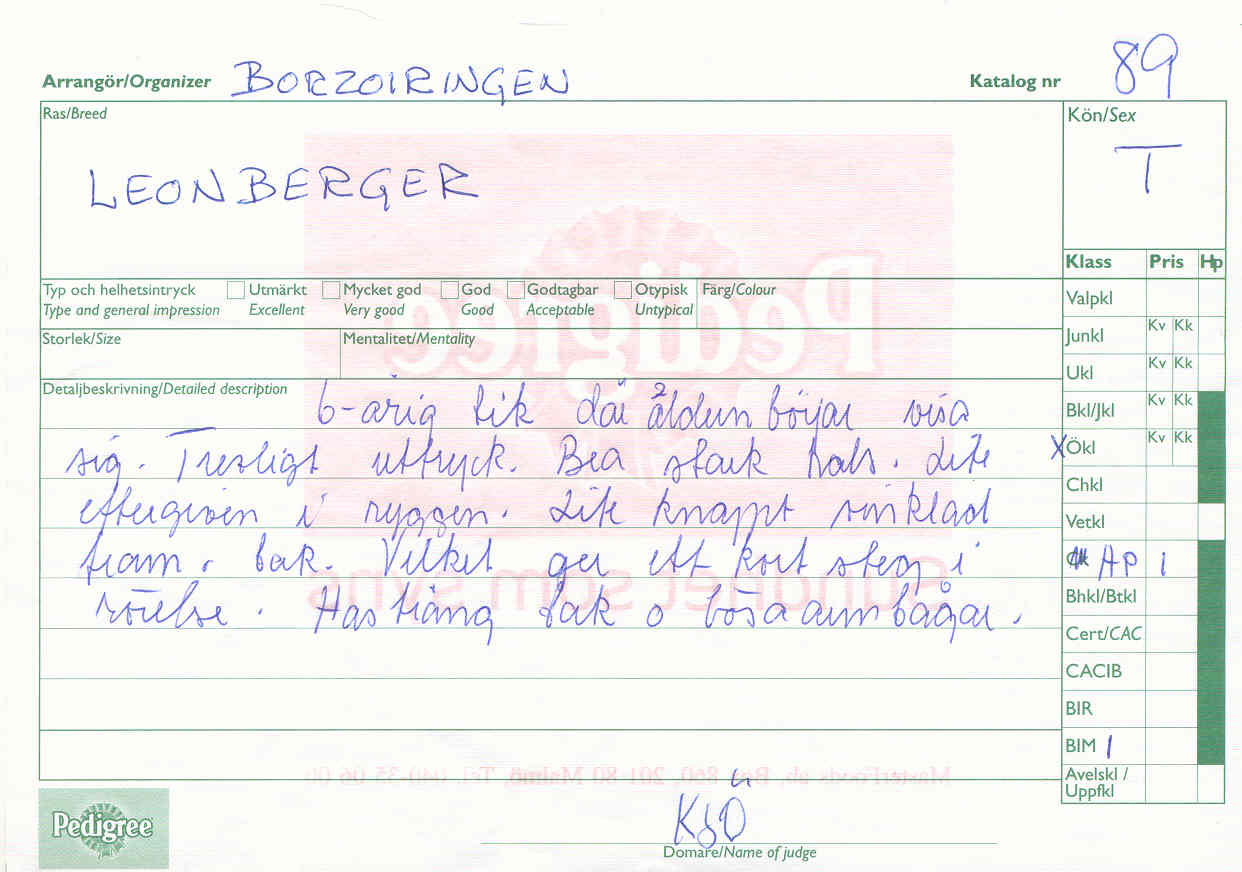 Arrangör/Organizer BORZOIRINGEN Katalog nr 89
Ras/Breed
LEONBERGER
Kön/Sex
T
Klass Pris Hp
Typ och helhetsintryck Utmärkt Mycket god God Godtagbar Otypisk Färg/Colour
Type and general impression Excellent Very good Good Acceptable Untypical
Valpkl
Storlek/Size Mentalitet/Mentality
Junkl Kv Kk
Ukl Kv Kk
Detaljbeskrivning/Detailed description
6-årig tik där åldern börjar visa
Bkl/Jkl Kv Kk
sig. Trevligt uttryck. Bra stark hals. Lite
X Ökl Kv Kk
eftergiven i ryggen. Lite knappt vinklad
Chkl
Vetkl
fram o bak. Vilket ger ett kort steg i
HP 1
rörelse. Has trång bak o lösa armbågar.
Bhkl/Btkl
Cert/CAC
CACIB
BIR
BIM 1
Avelskl /
Uppfkl
MasterFoods ab, Box 860, 201-80 Malmö, Tel. 040-35 06 00
Pedigree
Sundhet som syns
Pedigree
KSÖ
Domare/Name of judge